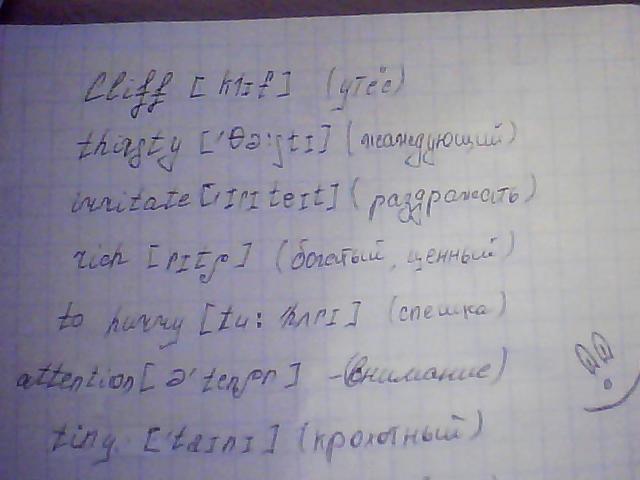 Cliff [klIf] (утёс)
thirsty ['θə:stI] (жаждующий)
irritate ['IrIteIt] (раздражать)
rich [rItʃ] (богатый, ценный)
to hurry [tu: hʌrI] (спешка)
attention [ə'tenʃn] - (внимание)
tiny ['taInI] (крохотный)